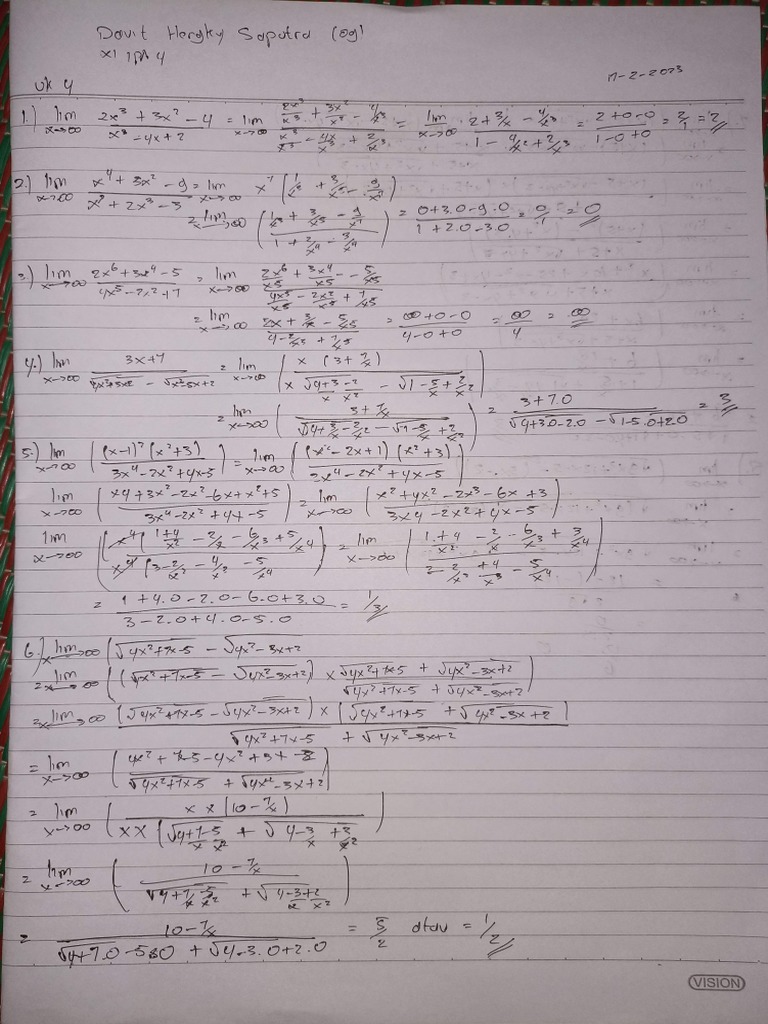 Davit Hengky Saputra (09)
XI IPA 4
17-2-2023
UK 4
1.) lim x→∞ 2x³ + 3x² - 4 / x³ - 4x + 2 = lim x→∞ 2x³/x³ + 3x²/x³ - 4/x³ / x³/x³ - 4x/x³ + 2/x³ = lim x→∞ 2 + 3/x - 4/x³ / 1 - 4/x² + 2/x³ = 2+0-0 / 1-0+0 = 2/1 = 2
2.) lim x→∞ x⁴ + 3x² - 9 / x⁷ + 2x³ - 3 = lim x→∞ x⁷ (1/x³ + 3/x⁵ - 9/x⁷)
= lim x→∞ (1/x³ + 3/x⁵ - 9/x⁷ / 1 + 2/x⁴ - 3/x⁴) = 0+3.0-9.0 / 1+2.0-3.0 = 0/1 = 0
3.) lim x→∞ 2x⁶ + 3x⁴ - 5 / 4x⁵ - 2x² + 7 = lim x→∞ 2x⁶/x5 + 3x⁴/x5 - - 5/x5 / 4x⁵/x⁵ - 2x²/x⁵ + 7/x5
= lim x→∞ 2x + 3/x - 5/x5 / 4 - 2/x³ + 7/x5 = ∞+0-0 / 4-0+0 = ∞/4 = ∞
4.) lim x→∞ 3x+7 / √4x²+3x-2 - √x²-5x+2 = lim x→∞ (x (3+7/x) / x √4+3/x-2/x² - √1-5/x+2/x²)
= lim x→∞ (3+7/x / √4+3/x-2/x² - √1-5/x+2/x²) = 3+7.0 / √4+3.0-2.0 - √1-5.0+2.0 = 3
5.) lim x→∞ ((x-1)² (x²+3) / 3x⁴-2x²+4x-5) = lim x→∞ ((x²-2x+1) (x²+3) / 3x⁴-2x²+4x-5)
lim x→∞ (x4+3x²-2x²-6x+x²+5 / 3x⁴-2x²+4x-5) = lim x→∞ (x²+4x²-2x³-6x+3 / 3x4-2x²+4x-5)
lim x→∞ (x⁴ (1+4/x² - 2/x - 6/x³ + 5/x4) / x⁴ (3-2/x² - 4/x³ - 5/x⁴)) = lim x→∞ (1+4/x² - 2/x - 6/x³ + 3/x4 / 3-2/x² + 4/x³ - 5/x⁴)
= 1+4.0-2.0-6.0+3.0 / 3-2.0+4.0-5.0 = 1/3
6.) lim x→∞ (√4x²+7x-5 - √4x²-3x+2
= lim x→∞ ((√4x²+7x-5 - √4x²-3x+2) × √4x²+7x-5 + √4x²-3x+2 / √4x²+7x-5 + √4x²-3x+2)
= lim x→∞ (√4x²+7x-5 - √4x²-3x+2) × (√4x²+7x-5 + √4x²-3x+2) / √4x²+7x-5 + √4x²-3x+2
= lim x→∞ (4x²+7x-5-4x²+3x-2 / √4x²+7x-5 + √4x²-3x+2)
= lim x→∞ (x x (10-7/x) / x x (√4+7/x-5/x² + √4-3/x+3/x²)
= lim x→∞ (10-7/x / √4+7/x-5/x² + √4-3/x+2/x²)
= 10-7/x / √4+7.0-5.0 + √4-3.0+2.0 = 5/2 atau = 1/2
VISION